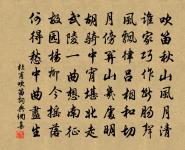 吹笛秋山風月清
誰家巧作斷腸聲
風飄律呂相和切
月傍關山幾處明
胡騎中宵堪北走
武陵一曲想南征
故園楊柳今搖落
何得愁中曲盡生
杜甫吹笛詞典網集